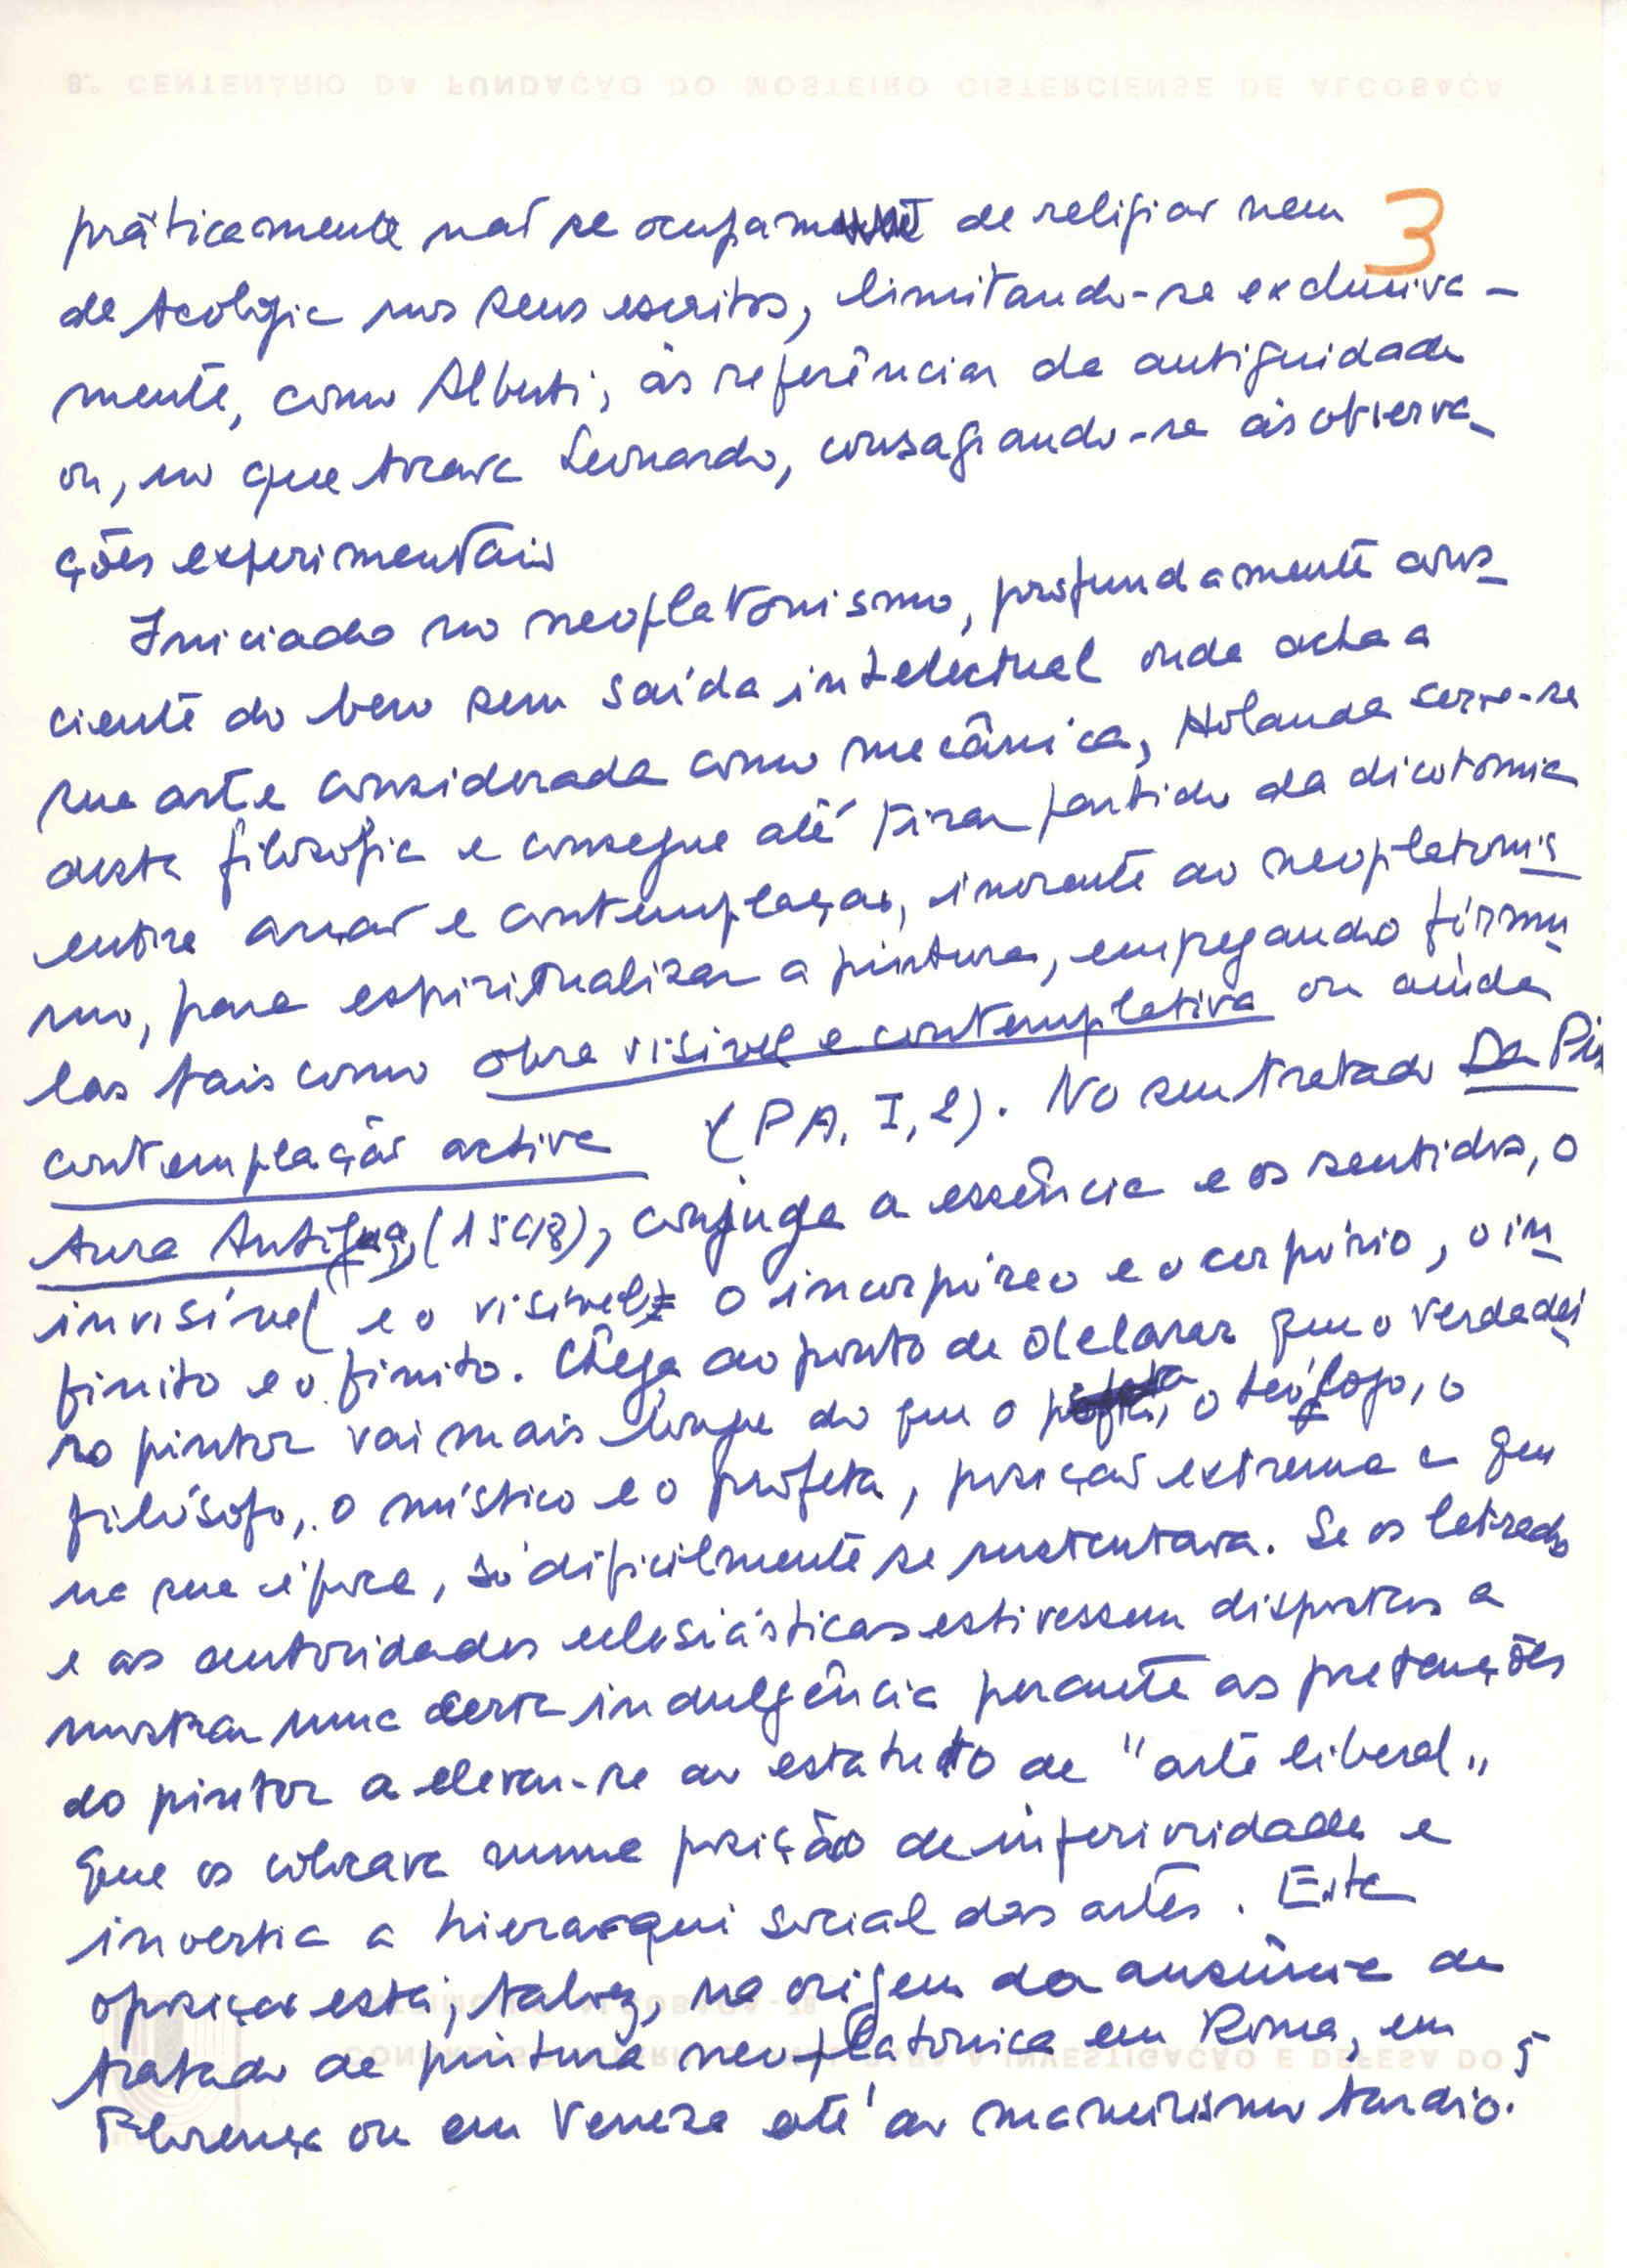 3
práticamente não se ocupam de religião nem
de teologia nos seus escritos, limitando-se exclusiva-
mente, como Alberti, às referências da antiguidade
ou, no que tocava Leonardo, consagrando-se às observa-
ções experimentais
Iniciado no neoplatonismo, profundamente cons-
ciente do beco sem saída intelectual onde acha a
sua arte considerada como mecânica, Holanda serve-se
desta filosofia e consegue até tirar partido da dicotomia
entre acção e contemplação, inerente ao neoplatonis
mo, para espiritualizar a pintura, empregando fórmu
las tais como obra visível e contemplativa ou ainda
contemplação activa (PA, I, 2). No seu tratado Da Pin
tura Antigua, (1548), conjuga a essência e os sentidos, o
invisível e o visível, o incorpóreo e o corpório, o in
finito e o finito. Chega ao ponto de declarar que o verdadei
ro pintor vai mais longe do que o poeta, o teólogo, o
filósofo, o místico e o profeta, posição extrema e que
na sua época, só dificilmente se sustentava. Se os letrados
e as autoridades eclesiásticas estivessem dispostas a
mostrar uma certa indulgência perante as pretenções
do pintor a elevar-se ao estatuto de "arte liberal"
que os colocava numa posição de inferioridade e
invertia a hierarqui social das artes. Esta
oposição está, talvez, na origem da ausência de
tratado de pintura neoplatónica em Roma, em
Florença ou em Veneza até ao maneirismo tardio.5
8.º CENTENÁRIO DA FUNDAÇÃO DO MOSTEIRO CISTERCIENSE DE ALCOBAÇA